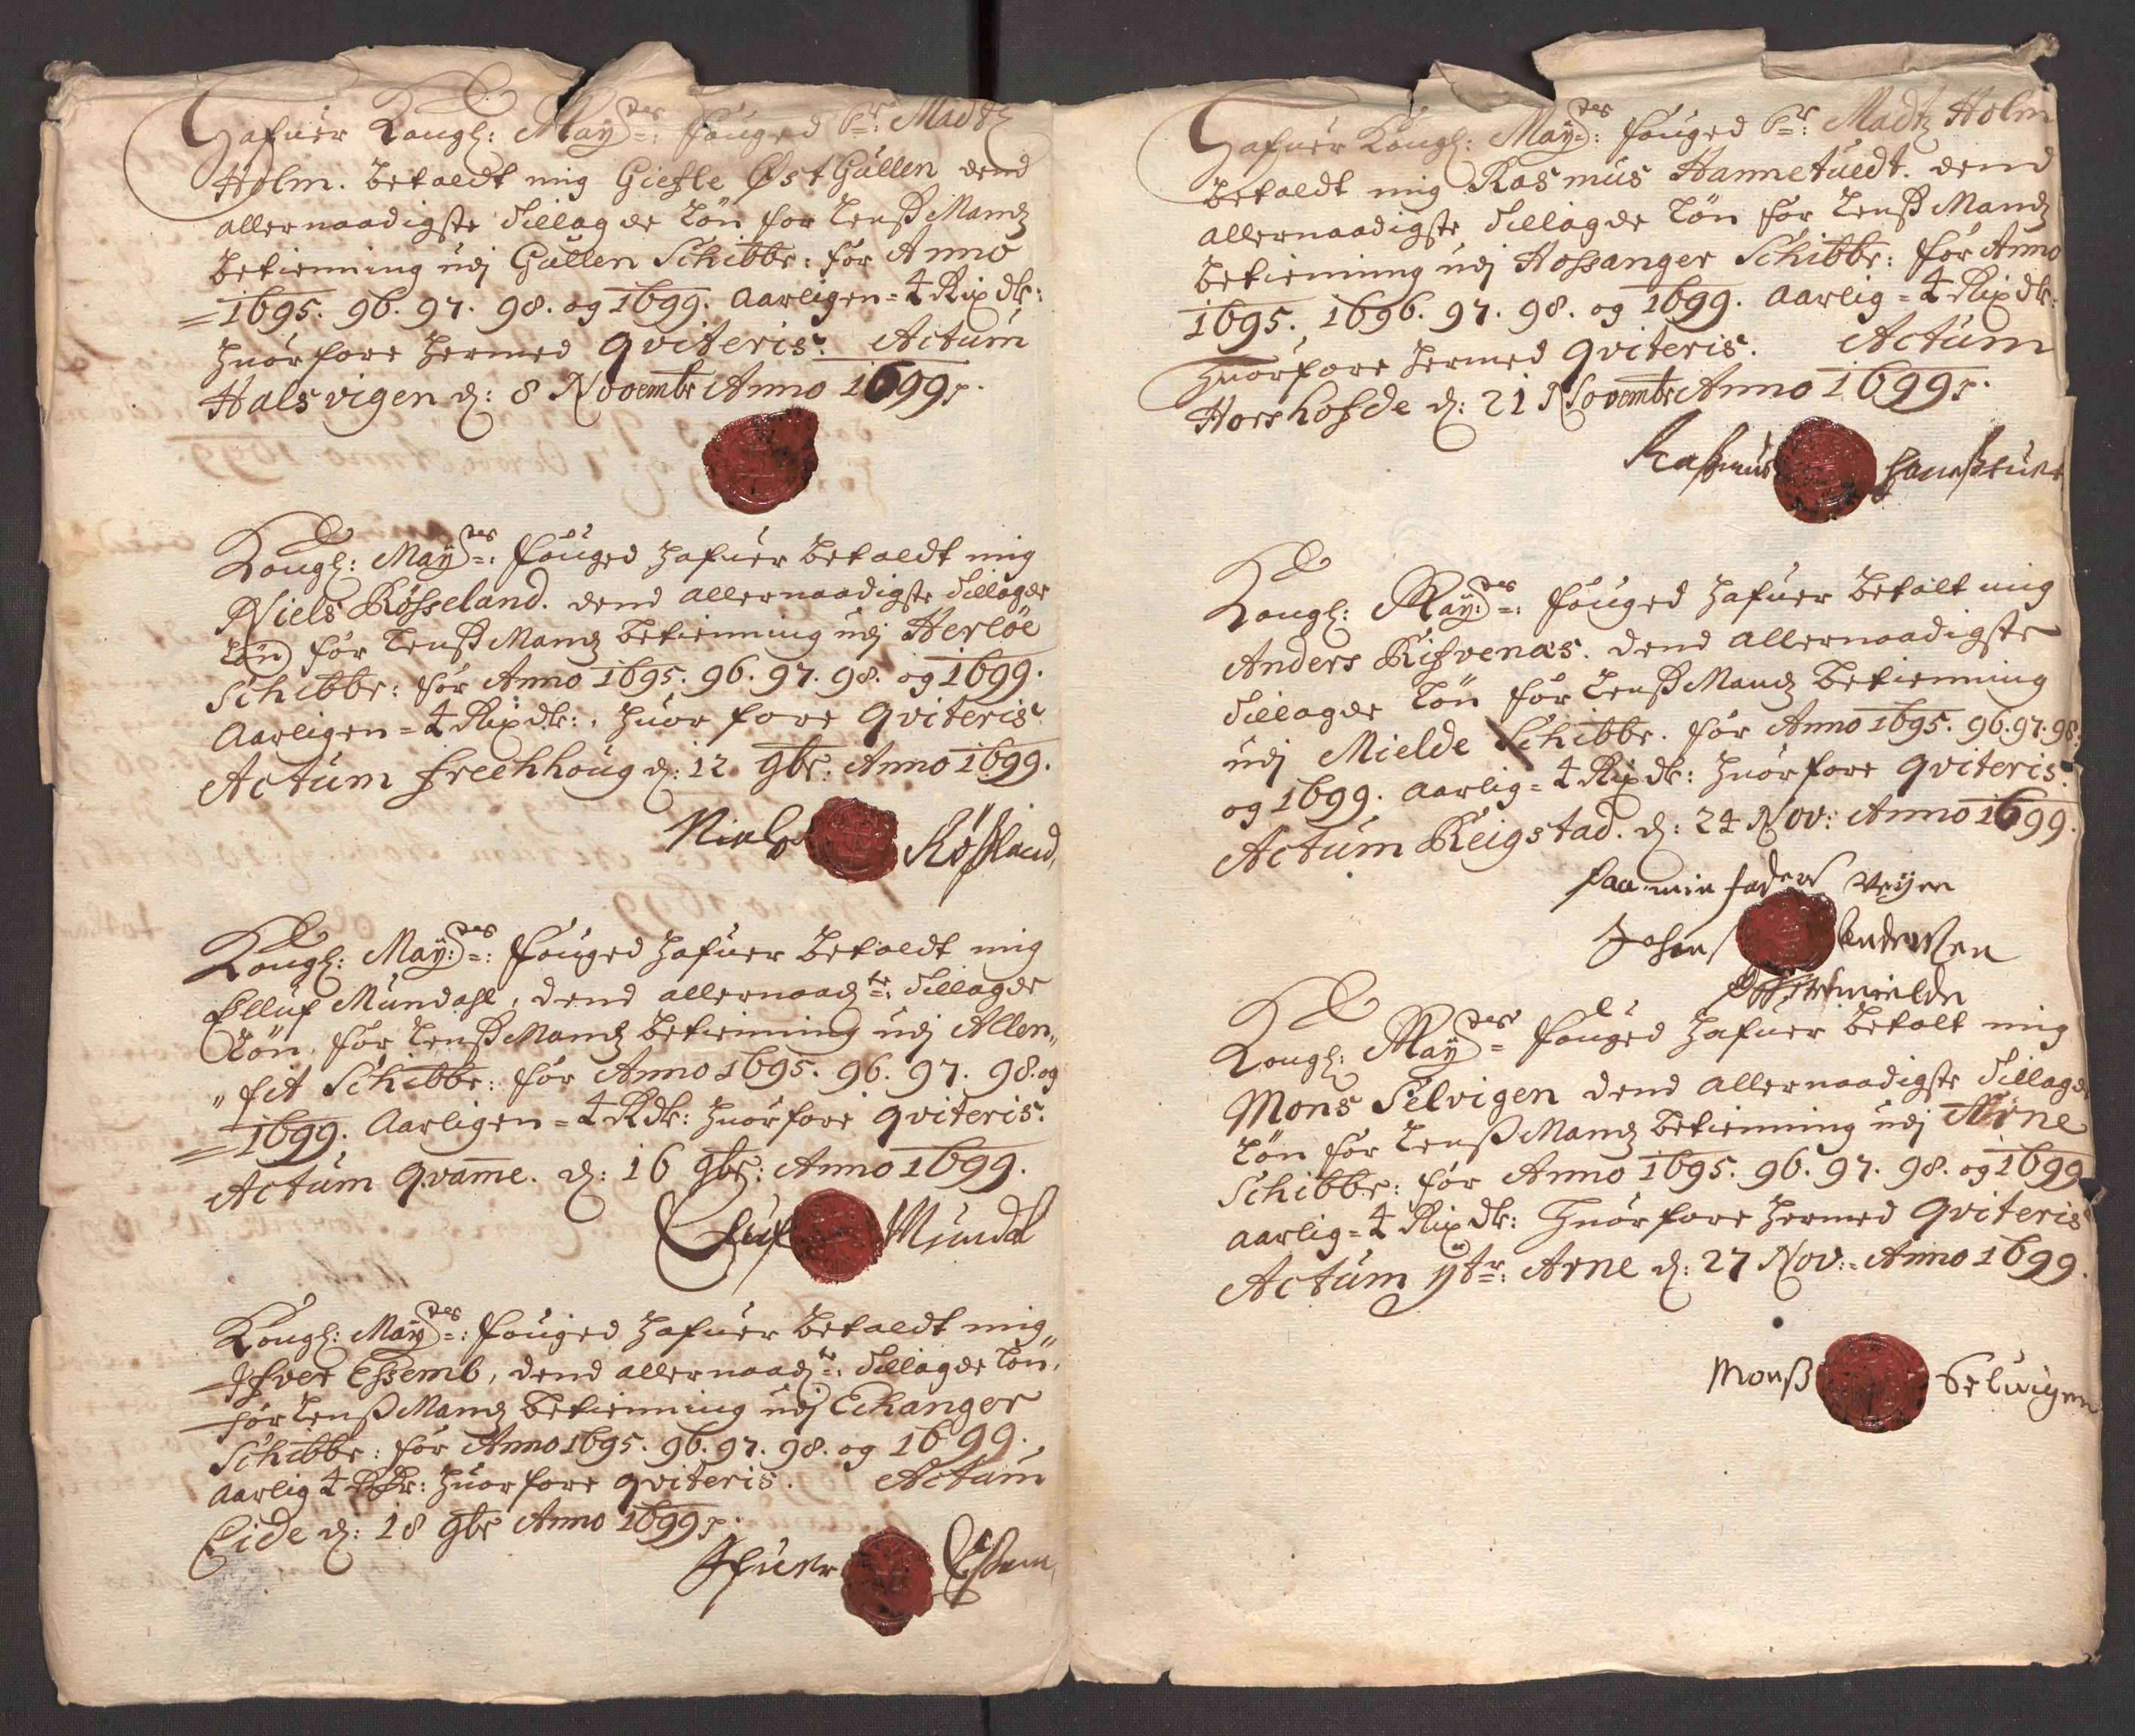 Hafuer Kongl: May:tes: fouged Sr: Madtz
Holm. betaldt mig Giefle Øst Gullen dend
allernaadigste tillagde Løn for Lenssmandz
betienning udj Gullen Schibbr: for Anno
1695. 96. 97. 98. og 1699. aarligen = 4 Rixdlr:
huorfore hermed qviteris. Actum
Halsvigen d: 8 Novembr Anno 1699.
Kongl: May:tes: fouged hafuer betaldt mig
Niels Rosseland. dend allernaadigste tillagde
Løn for Lenssmandz betienning udj Herløe
Schibbr: for Anno 1695. 96. 97. 98. og 1699.
aarligen = 4 Rixdlr: huorfore qviteris
Actum Freehhoug d: 12 9br: Anno 1699.
Niels Røssland
Kongl: May:tes: fouged hafuer betaldt mig
Elluf Mundahl, dend allernaadte: tillagde
Løn, for Lenssmandz betienning udj Allen„
„fit Schibbr: for Anno 1695. 96. 97. 98. og
1699. aarligen = 4 Rdlr: huorfore qviteris.
Actum Qvamme. d: 16 9br: Anno 1699.
Eluf Mundal
Kongl: May:tes: fouged hafuer betaldt mig
Ifver Essemb, dend allernaadte: tillagde Løn,
for Lenssmandz betienning udj Echanger
Schibbr: for Anno 1695. 96. 97. 98. og 1699.
aarlig 4 Rdr: huorfore qviteris. Actum
Eide d: 18 9br Anno 1699.
Ifuer Essem
Hafuer Kongl: May:tes: fouged Sr: Madtz Holm
betaldt mig Rasmus Hannetuedt. dend
allernaadigste tillagde Løn for Lenssmandz
betienning udj Hossanger Schibbr: for Anno
1695. 1696. 97. 98. og 1699. aarlig = 4 Rixdlr:
huorfore hermed qviteris. Actum
Horshofde d: 21 Novembr Anno 1699.
Rasmus
Kongl: May:tes: fouged hafuer betalt mig
Anders Rifvenæs. dend allernaadigste
tillagde Løn for Lenssmandz betienning
udj Mielde Schibbr. for Anno 1695. 96. 97. 98.
og 1699. aarlig = 4 Rixdlr: huorfore qviteris.
Actum Reigstad. d: 24 Nov: Anno 1699.
Paa min faders veyne
Johan Andersen
mielde
Kongl: May:tes fouged hafuer betalt mig
Mons Selvigen dend allernaadigste tillagde
Løn for Lenssmandz betienning udj Arne
Schibbr: for Anno 1695. 96. 97. 98. og 1699
aarlig = 4 Rixdlr: huorfore hermed qviteris
Actum ytr: Arne d: 27 Nov: Anno 1699.
Monss Seluigen